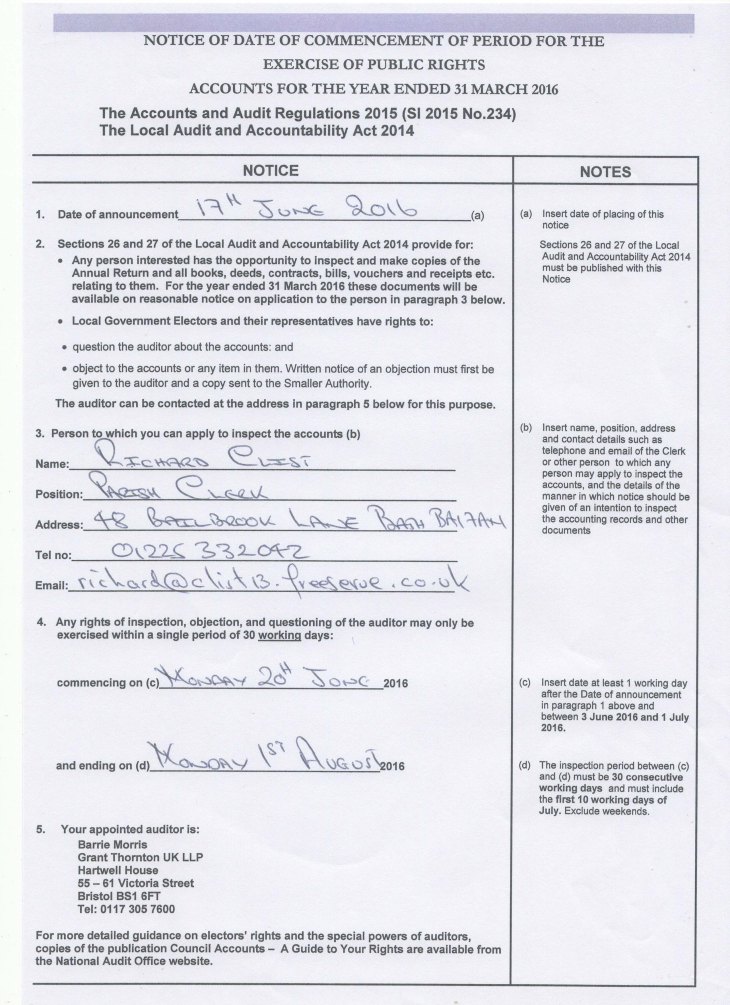 NOTICE OF DATE OF COMMENCEMENT OF PERIOD FOR THE
EXERCISE OF PUBLIC RIGHTS
ACCOUNTS FOR THE YEAR ENDED 31 MARCH 2016
The Accounts and Audit Regulations 2015 (SI 2015 No.234)
The Local Audit and Accountability Act 2014
NOTICE
1. Date of announcement 17TH JUNE 2016 (a)
2. Sections 26 and 27 of the Local Audit and Accountability Act 2014 provide for:
• Any person interested has the opportunity to inspect and make copies of the
Annual Return and all books, deeds, contracts, bills, vouchers and receipts etc.
relating to them. For the year ended 31 March 2016 these documents will be
available on reasonable notice on application to the person in paragraph 3 below.
• Local Government Electors and their representatives have rights to:
• question the auditor about the accounts: and
• object to the accounts or any item in them. Written notice of an objection must first be
given to the auditor and a copy sent to the Smaller Authority.
The auditor can be contacted at the address in paragraph 5 below for this purpose.
3. Person to which you can apply to inspect the accounts (b)
Name: RICHARD CLIST
Position: PARISH CLERK
Address: 48 BAILBROOK LANE BATH BA1 7AN
Tel no: 01225 332042
Email: richard@clist13.freeserve.co.uk
4. Any rights of inspection, objection, and questioning of the auditor may only be
exercised within a single period of 30 working days:
commencing on (c) MONDAY 20TH JUNE 2016
and ending on (d) MONDAY 1ST AUGUST 2016
5. Your appointed auditor is:
Barrie Morris
Grant Thornton UK LLP
Hartwell House
55 – 61 Victoria Street
Bristol BS1 6FT
Tel: 0117 305 7600
For more detailed guidance on electors' rights and the special powers of auditors,
copies of the publication Council Accounts – A Guide to Your Rights are available from
the National Audit Office website.
NOTES
(a) Insert date of placing of this
notice
Sections 26 and 27 of the Local
Audit and Accountability Act 2014
must be published with this
Notice
(b) Insert name, position, address
and contact details such as
telephone and email of the Clerk
or other person to which any
person may apply to inspect the
accounts, and the details of the
manner in which notice should be
given of an intention to inspect
the accounting records and other
documents
(c) Insert date at least 1 working day
after the Date of announcement
in paragraph 1 above and
between 3 June 2016 and 1 July
2016.
(d) The inspection period between (c)
and (d) must be 30 consecutive
working days and must include
the first 10 working days of
July. Exclude weekends.